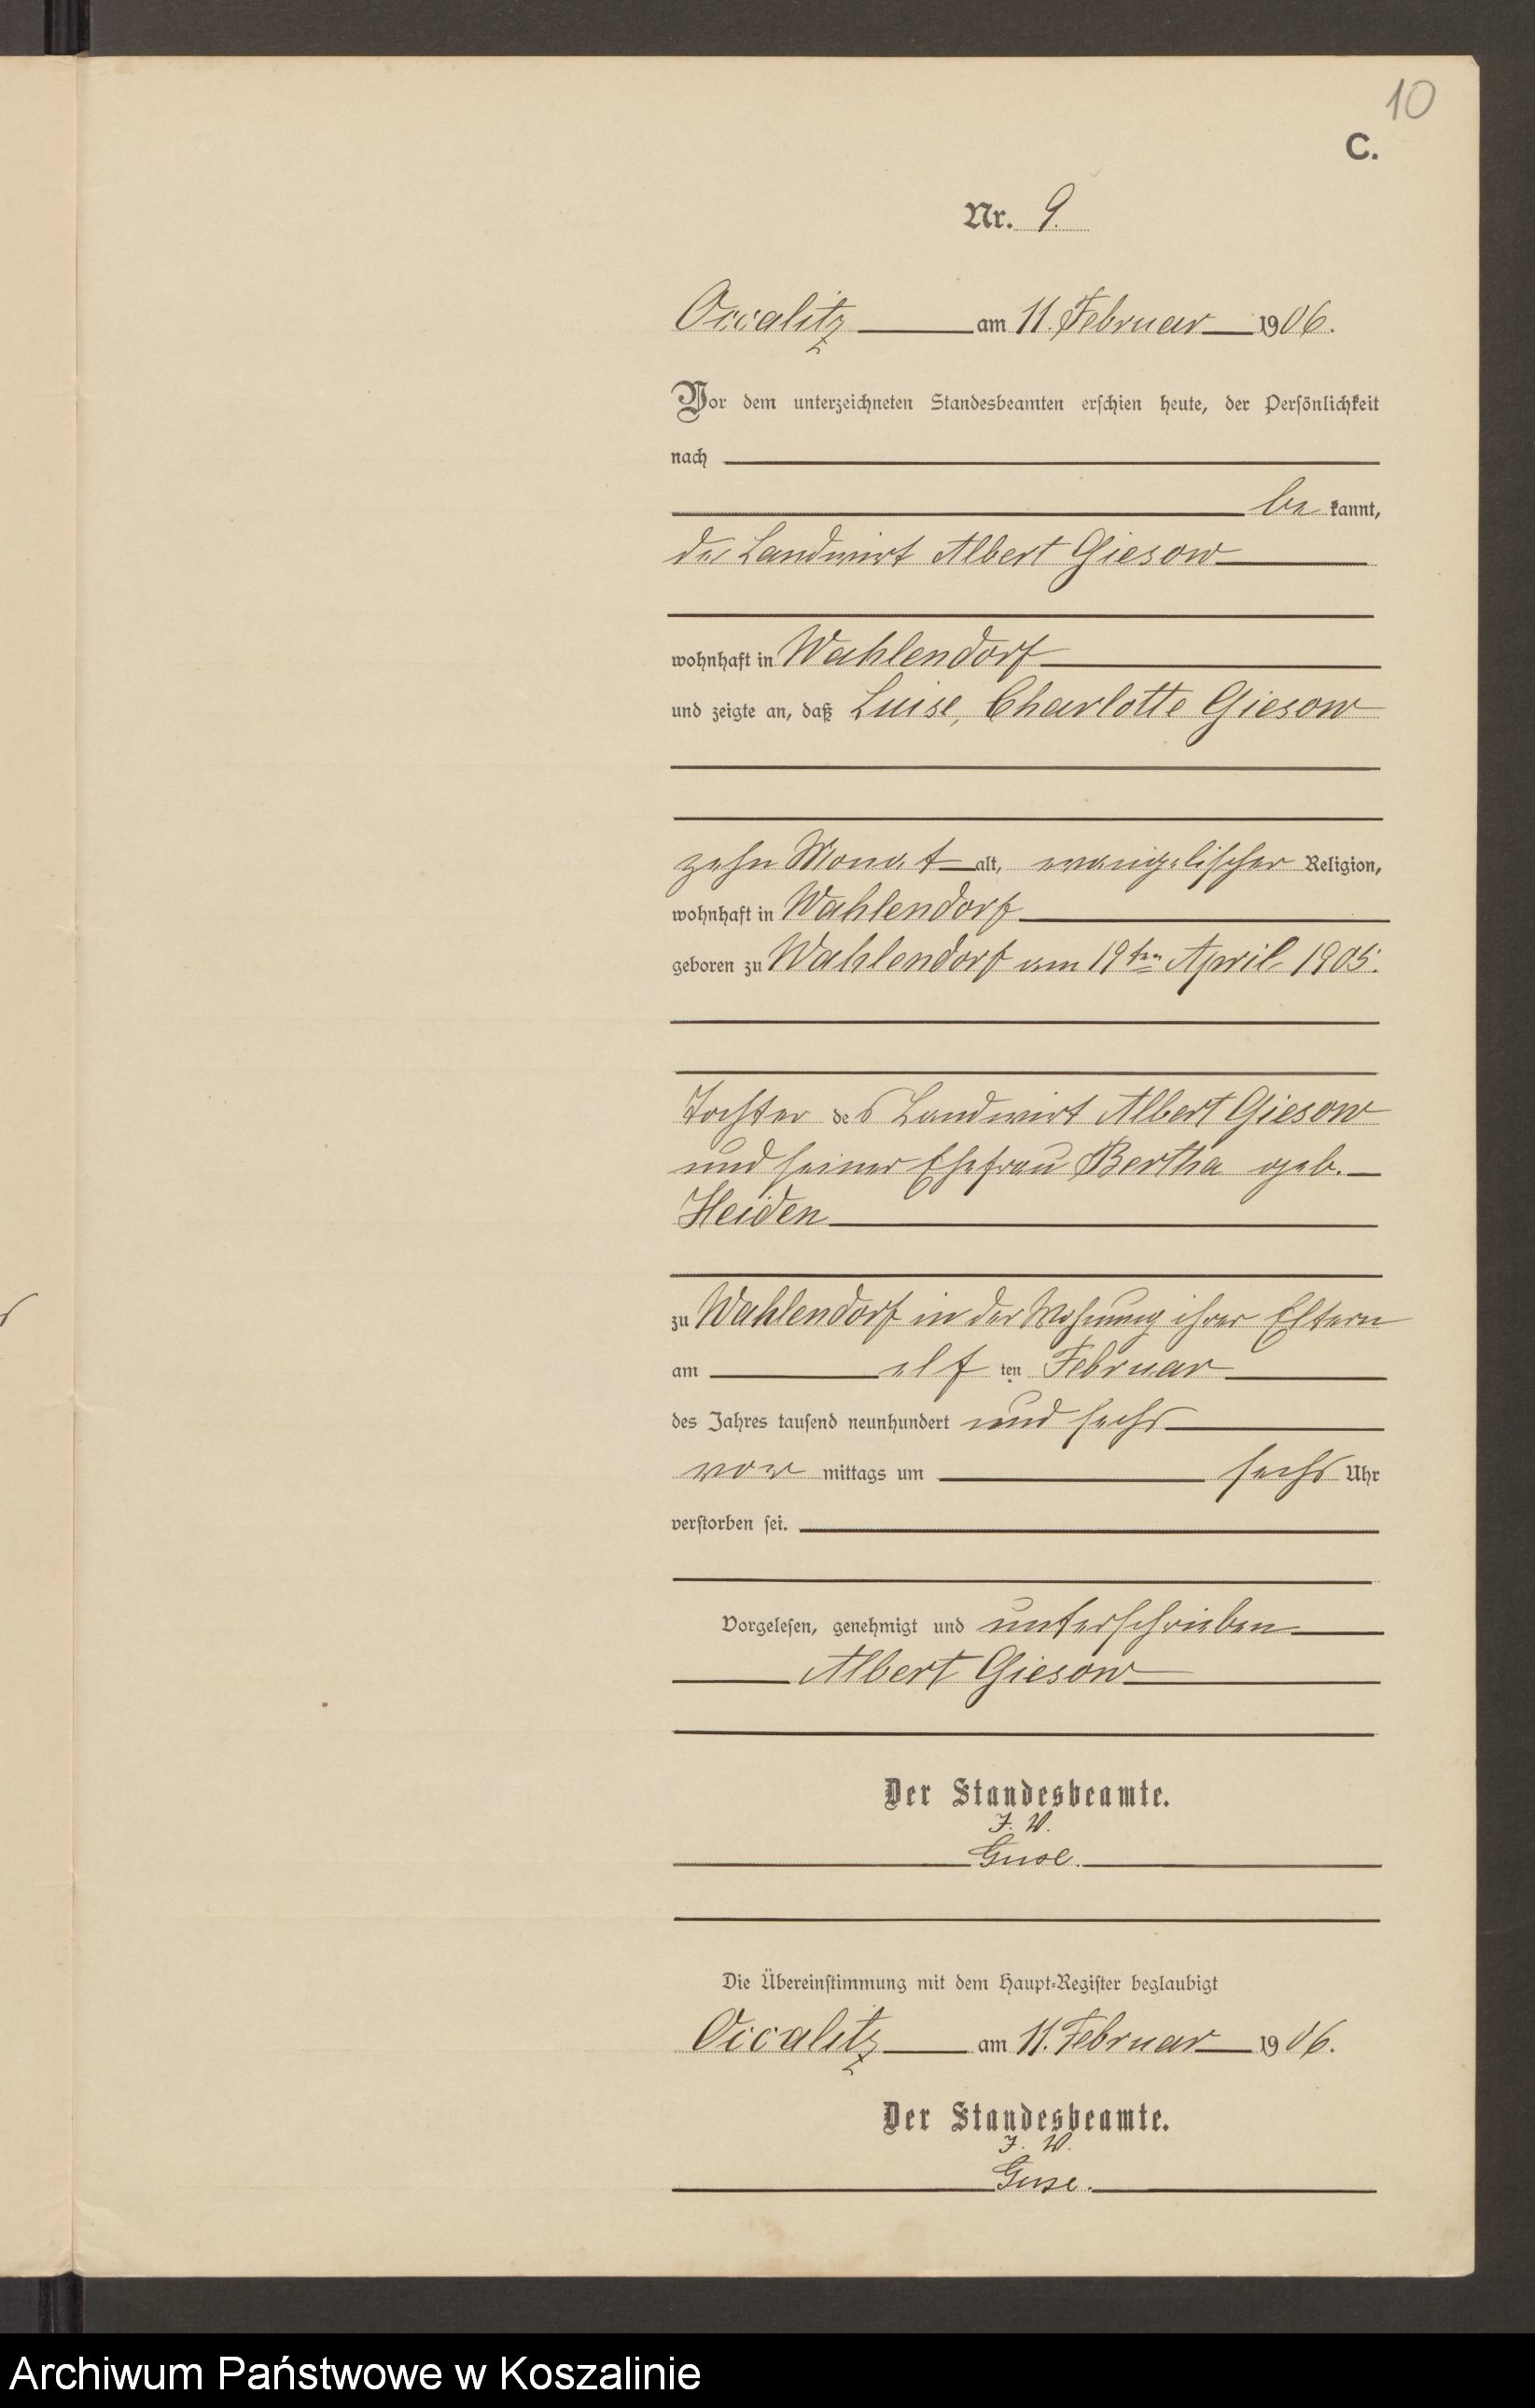 10
C.
Nr. 9.
Occalitz am 11. Februar 1906.
Vor dem unterzeichneten Standesbeamten erschien heute, der Persönlichkeit
nach
be kannt,
der Landwirt Albert Giesow
wohnhaft in Wahlendorf
und zeigte an, daß Luise, Charlotte Giesow
zehn Monat alt, evangelischer Religion,
wohnhaft in Wahlendorf
geboren zu Wahlendorf am 19ten April 1905.
Tochter des Landwirt Albert Giesow
und seiner Ehefrau Bertha geb.
Heiden
zu Wahlendorf in der Wohnung ihrer Eltern
am elf ten Februar
des Jahres tausend neunhundert und sechs
vor mittags um sechs Uhr
verstorben sei.
Vorgelesen, genehmigt und unterschrieben
Albert Giesow
Der Standesbeamte.
J. V.
Guse.
Die Übereinstimmung mit dem Haupt-Register beglaubigt
Occalitz am 11. Februar 1906.
Der Standesbeamte.
J. V.
Guse.
Archiwum Państwowe w Koszalinie